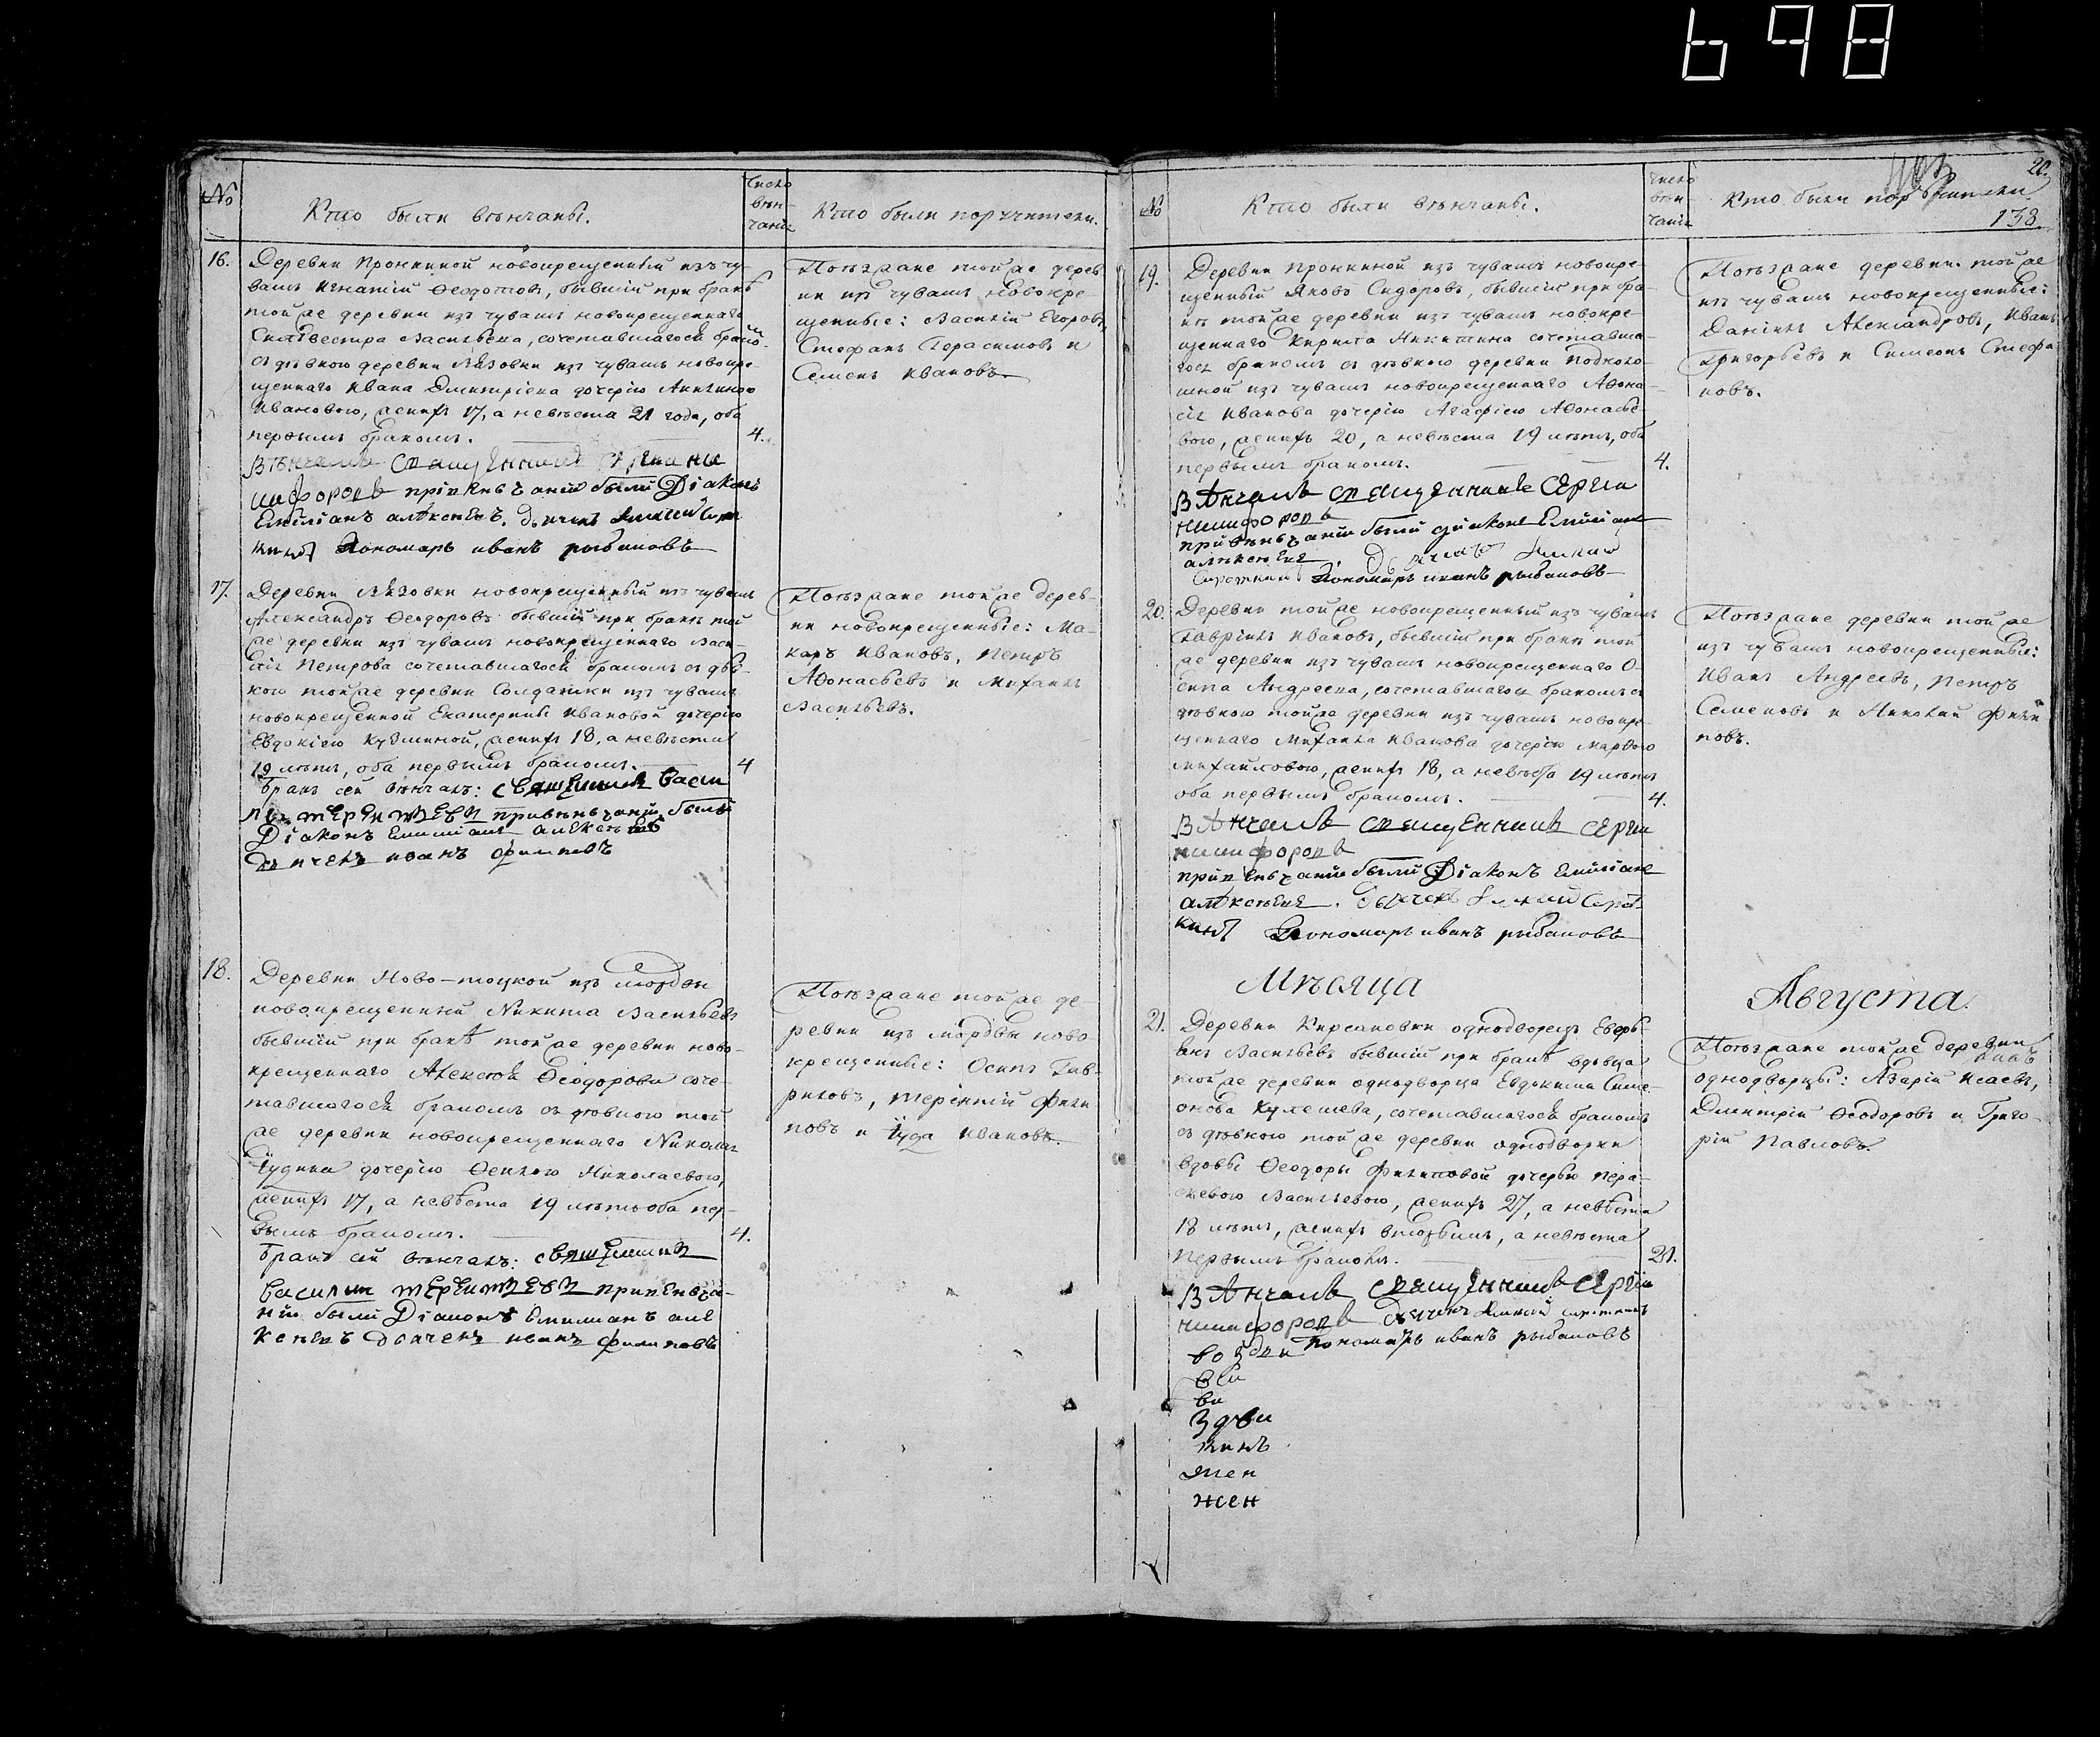 698
№
Кто были вѣнчаны.
Число
вѣн-
чанія
Кто были поручители.
16.
Деревни Пронкиной новокрещенный изъ чу-
вашъ Игнатій Ѳеодотовъ, бывшій при бракѣ
той же деревни изъ чувашъ новокрещеннаго
Сильвестра Васильева, сочетавшагося брако-
съ дѣвкою деревни Язовки изъ чувашъ новокре-
щеннаго Ивана Дмитріева дочерію
Ивановою, женихъ 17, а невѣста 21 года, оба
первымъ бракомъ.
4.
Вѣнчалъ священникъ Сергии
никифоровъ при вѣнчаніи были Діаконъ
Емиліанъ алѣксѣевъ. дьячекъ
Пономарь иванъ рыбаковъ
Поѣзжане той же дерев
ни изъ чувашъ новокре-
щенные: Василій Егоровъ,
Стефанъ Герасимовъ и
Семенъ Ивановъ.
17.
Деревни Язовки новокрещенный изъ чувашъ
Александръ Ѳеодоровъ бывшій при бракѣ той
же деревни изъ чувашъ новокрещеннаго Васи-
лія Петрова сочетавшагося бракомъ съ дѣв-
кою той же деревни Солдатки изъ чувашъ
новокрещенной Екатерины Ивановой дочерію
Евдокіею Кузминой, женихъ 18, а невѣста
19 лѣтъ, оба первымъ бракомъ.
4
бракъ сей вѣнчалъ: священникъ васи
при вѣнчаніи были
Діаконъ Емиліанъ алексѣевъ
дьячекъ иванъ филиповъ
Поѣзжане той же дерев-
ни новокрещенные: Ма-
каръ Ивановъ, Петръ
Аѳонасьевъ и Михаилъ
Васильевъ.
18.
Деревни Ново-тоцкой изъ мордвы
новокрещенный Никита Васильевъ
бывшій при бракѣ той же деревни ново-
крещеннаго Алексѣя Ѳеодорова соче-
тавшагося бракомъ съ дѣвкою той
же деревни новокрещеннаго Николая
Іудина дочерію Ѳеклою Николаевою,
женихъ 17, а невѣста 19 лѣтъ оба пер-
вымъ бракомъ.
4.
бракъ сей вѣнчалъ: священникъ
василии при вѣнча-
ніи были Діаконъ Емилианъ але
ксѣевъ дьячекъ иванъ филиповъ
Поѣзжане той же де-
ревни изъ мордвы ново
крещенные: Осипъ Гав-
риловъ, Терентій Фили
повъ и Іуда Ивановъ.
20.
138.
№
Кто были вѣнчаны.
Число
вѣн-
чанія
Кто были поручители.
19.
Деревни Пронкиной изъ чувашъ новокре-
щенный Яковъ Сидоровъ, бывшій при бра-
кѣ той же деревни изъ чувашъ новокре-
щеннаго Кирила Никитина сочетавша-
гося бракомъ съ дѣвкою деревни Подколо-
шной изъ чувашъ новокрещеннаго Аѳона-
сія Иванова дочерію Агафіею Аѳонасье-
вою, женихъ 20, а невѣста 19 лѣтъ, оба
первымъ бракомъ.
4.
Вѣнчалъ священникъ Сергии
никифоровъ
при вѣнчаніи были діаконъ Емиліанъ
алѣксѣевъ. Дьячекъ
Пономарь иванъ рыбаковъ
Поѣзжане деревни той же
изъ чувашъ новокрещенные:
Даніилъ Александровъ, Иванъ
Григорьевъ и Симеонъ Стефа
новъ.
20.
Деревни той же новокрещенный изъ чувашъ
Гавріилъ Ивановъ, бывшій при бракѣ той
же деревни изъ чувашъ новокрещеннаго О-
сипа Андреева, сочетавшагося бракомъ съ
дѣвкою той же деревни изъ чувашъ новокре-
щеннаго Михаила Иванова дочерію Марѳою
Михайловою, женихъ 18, а невѣста 19 лѣтъ
оба первымъ бракомъ.
4.
Вѣнчалъ священникъ Сергии
никифоровъ
при вѣнчаніи были Діаконъ Емиліанъ
алѣксѣевъ. Дьячекъ
Пономарь иванъ рыбаковъ
Поѣзжане деревни той же
изъ чувашъ новокрещенные:
Иванъ Андреевъ, Петръ
Семеновъ и Николай Фили
повъ.
Мѣсяца Августа.
21.
Деревни Кирсановки однодворецъ
Васильевъ бывшій при бракѣ вдовца
той же деревни однодворца Евдокима Симе-
онова Кулешева, сочетавшагося бракомъ
съ дѣвкою той же деревни однодворки
вдовы Ѳеодоры Филиповой дочерью Пара-
скевою Васильевою, женихъ 27, а невѣста
18 лѣтъ, женихъ вторымъ, а невѣста
первымъ бракомъ.
21.
Вѣнчалъ священникъ Сергіи
никифоровъ Дьячекъ
Пономарь иванъ рыбаковъ
Поѣзжане той же деревни
однодворцы: Азарій Исаевъ,
Дмитрій Ѳеодоровъ и Григо-
рій Павловъ.
жен